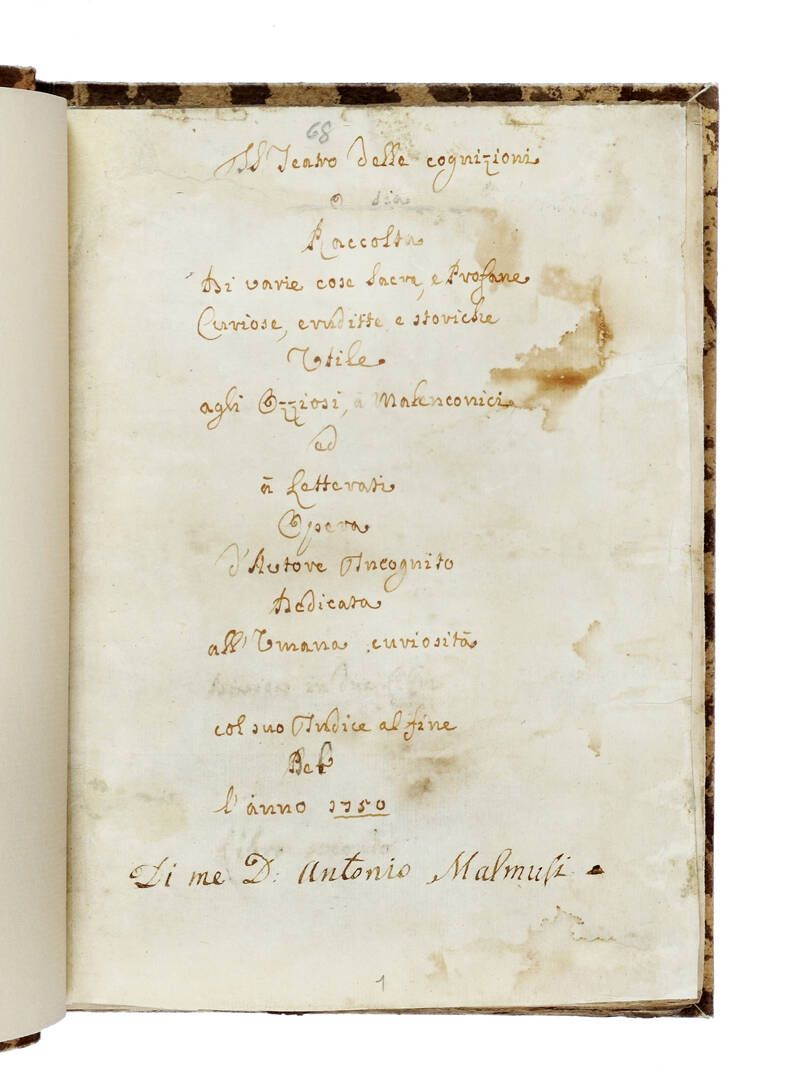 68
Il Teatro delle cognizioni
o sia
Raccolta
Di varie cose Sacre, e Profane
Curiose, erudítte, e storiche
Utile
agli Ozziosi, a Malenconici
ed
à Letterati
Opera
d'Autore Incognito
Dedicata
all'Umana curiosità
col suo Indice al fine
l'anno 1750
Di me D: Antonio Malmusi
1